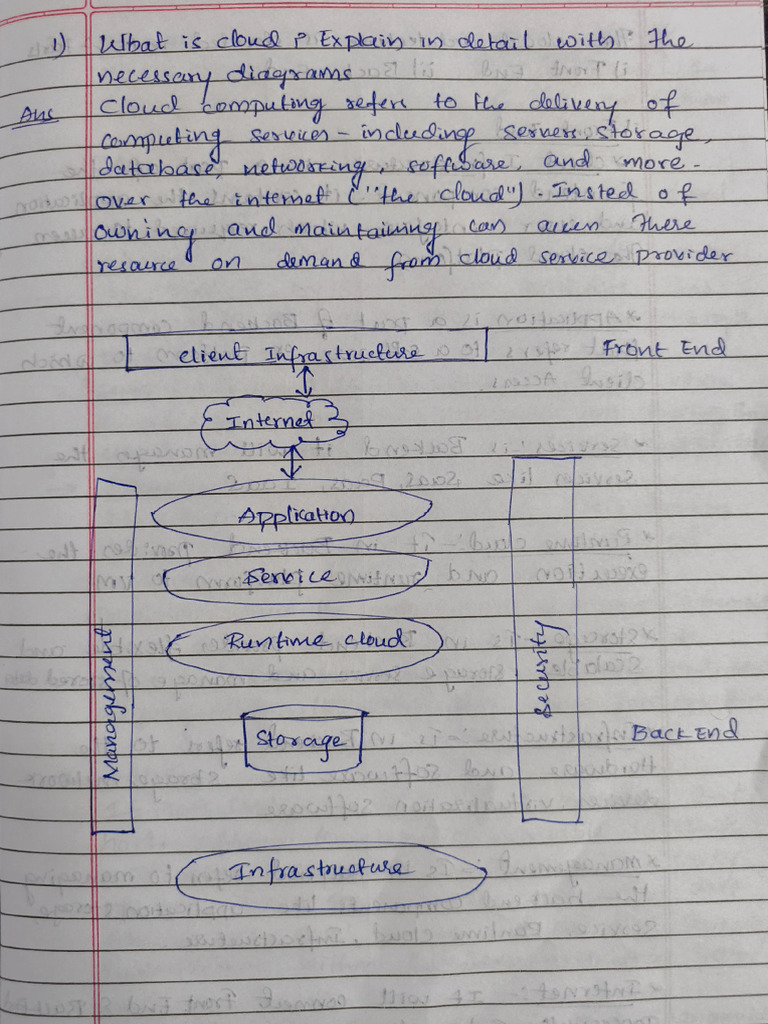 1) What is cloud ? Explain in detail with the
necessary diagrams
Ans Cloud computing refers to the delivery of
computing services - including servers, storage,
database, networking, software, and more -
over the internet ("the cloud"). Insted of
owning and maintaining can access there
resource on demand from cloud service provider
client Infrastructure Front End
Internet
Application
Service
Runtime cloud
Management
Security
Storage
Back End
Infrastructure